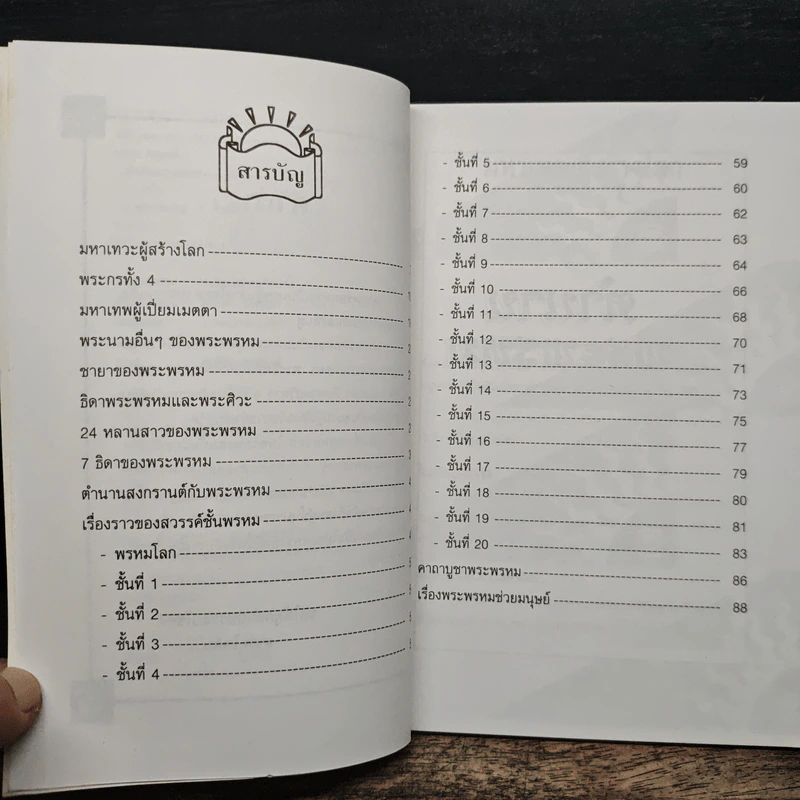 สารบัญ
มหาเทวะผู้สร้างโลก
พระกรทั้ง 4
มหาเทพผู้เปี่ยมเมตตา
พระนามอื่นๆ ของพระพรหม
ชายาของพระพรหม
ธิดาพระพรหมและพระศิวะ
24 หลานสาวของพระพรหม
7 ธิดาของพระพรหม
ตำนานสงกรานต์กับพระพรหม
เรื่องราวของสวรรค์ชั้นพรหม
- พรหมโลก
- ชั้นที่ 1
- ชั้นที่ 2
- ชั้นที่ 3
- ชั้นที่ 4
- ชั้นที่ 5 59
- ชั้นที่ 6 60
- ชั้นที่ 7 62
- ชั้นที่ 8 63
- ชั้นที่ 9 64
- ชั้นที่ 10 66
- ชั้นที่ 11 68
- ชั้นที่ 12 70
- ชั้นที่ 13 71
- ชั้นที่ 14 73
- ชั้นที่ 15 75
- ชั้นที่ 16 77
- ชั้นที่ 17 79
- ชั้นที่ 18 80
- ชั้นที่ 19 81
- ชั้นที่ 20 83
คาถาบูชาพระพรหม 86
เรื่องพระพรหมช่วยมนุษย์ 88